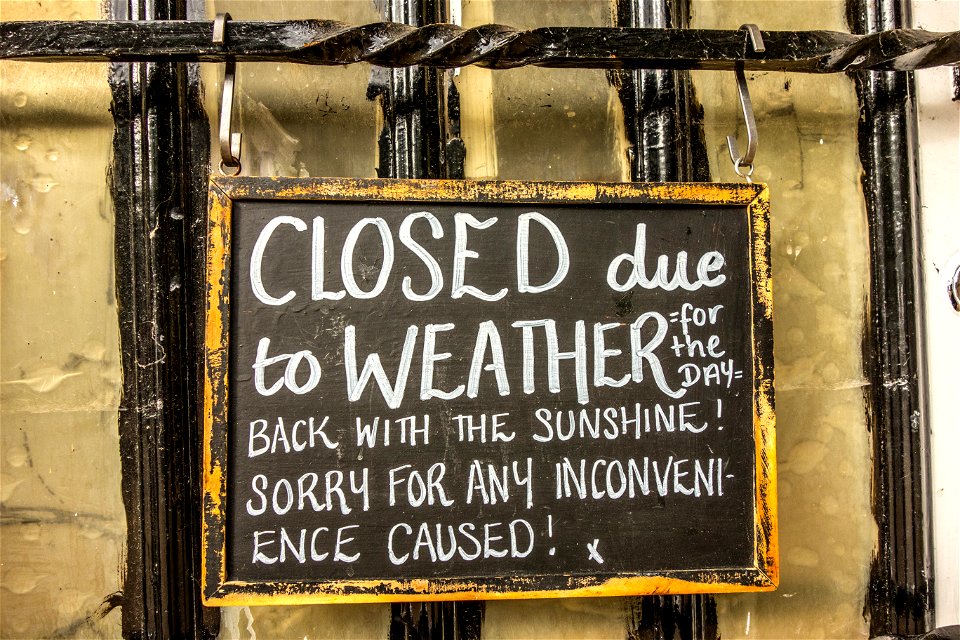 CLOSED due
to WEATHER =for the DAY=
BACK WITH THE SUNSHINE!
SORRY FOR ANY INCONVENI-
ENCE CAUSED! x